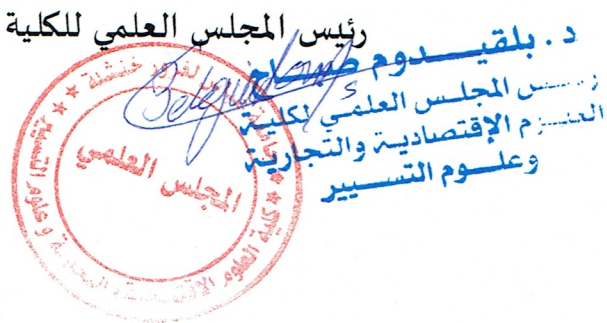 رئيس المجلس العلمي للكلية
د. بلقيدوم صباح
رئيس المجلس العلمي لكلية
العلوم الإقتصادية والتجارية
وعلوم التسيير
المجلس العلمي
لغرور خنشلة
كلية العلوم الإقتصادية و التجارية و علوم التسيير